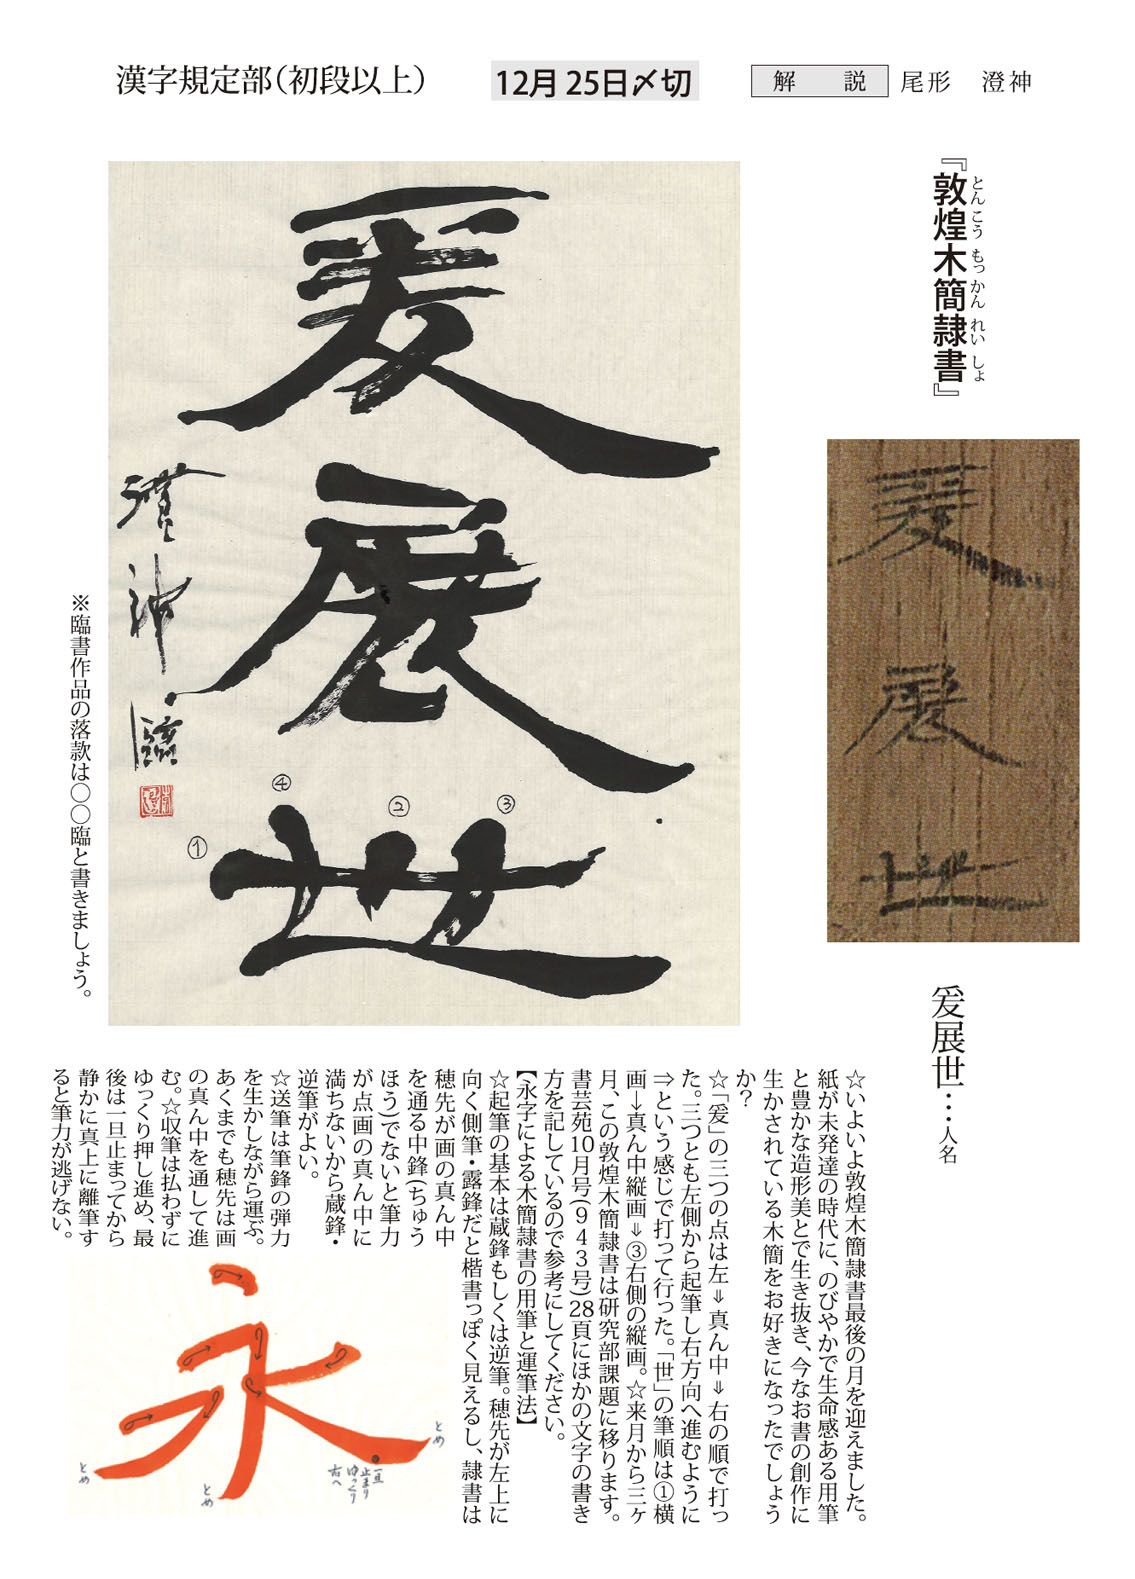 漢字規定部(初段以上)
12月25日〆切
解　説　尾形　澄神
『敦煌木簡隷書』
とんこうもっかんれいしょ
爰展世
爰展世…人名
爰展世
①
②
③
④
澄神臨
※臨書作品の落款は〇〇臨と書きましょう。
☆いよいよ敦煌木簡隷書最後の月を迎えました。
紙が未発達の時代に、のびやかで生命感ある用筆
と豊かな造形美とで生き抜き、今なお書の創作に
生かされている木簡をお好きになったでしょう
か?
☆「爰」の三つの点は左⇒真ん中⇒右の順で打っ
た。三つとも左側から起筆し右方向へ進むように
⇒という感じで打って行った。「世」の筆順は①横
画→真ん中縦画⇒③右側の縦画。☆来月から三ヶ
月、この敦煌木簡隷書は研究部課題に移ります。
書芸苑10月号(943号)28頁にほかの文字の書き
方を記しているので参考にしてください。
【永字による木簡隷書の用筆と運筆法】
☆起筆の基本は蔵鋒もしくは逆筆。穂先が左上に
向く側筆・露鋒だと楷書っぽく見えるし、隷書は
穂先が画の真ん中
を通る中鋒(ちゅう
ほう)でないと筆力
が点画の真ん中に
満ちないから蔵鋒・
逆筆がよい。
☆送筆は筆鋒の弾力
を生かしながら運ぶ。
あくまでも穂先は画
の真ん中を通して進
む。☆収筆は払わずに
ゆっくり押し進め、最
後は一旦止まってから
静かに真上に離筆す
ると筆力が逃げない。
永
とめ
一旦
止まり
ゆっくり
右へ
とめ
とめ